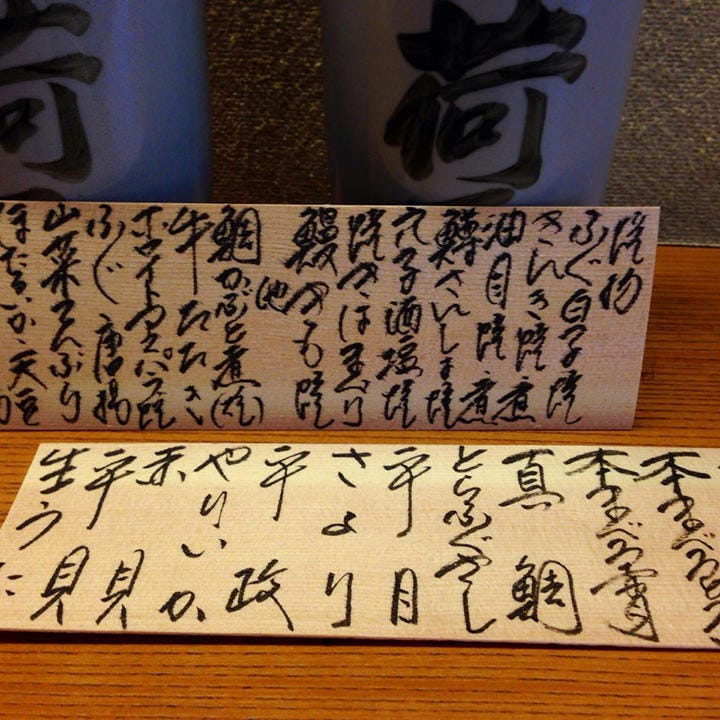 荷
荷
焼物
ふぐ白子焼
きんき焼 煮
油目焼 煮
鱒さんしょ焼
穴子酒塩焼
焼きはまぐり
鰻きも焼
他
鯛かぶと煮(焼)
牛たたき
ホワイトアスパラ焼
ふぐ唐揚
山菜てんぷら
ほたるいか天豆
本まぐろ
本まぐろ
真鯛
とらふぐ
平目
さより
平政
やりいか
赤貝
平貝
生うに